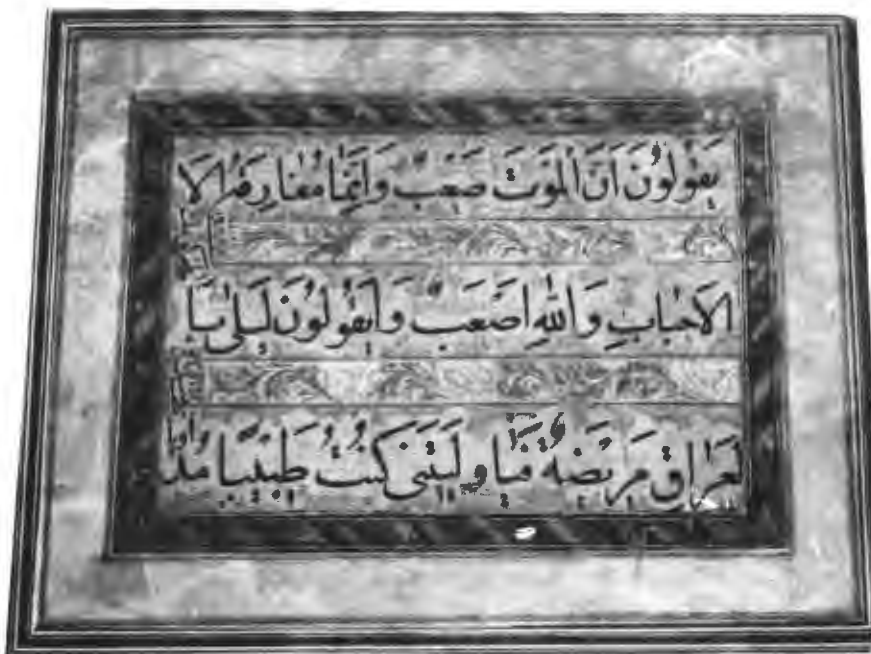 يَقُولُونَ اَنَّ الْمَوْتَ صَعْبٌ وَاِنَّمَا مُفَارِقَةُ الا
الاَحْبَابِ وَاللهِ اَصْعَبٌ وَيَقُولُونَ لَيْلٰى بِا
لعَرَاقِ مَرِيضَةٌ فَيَا وليتَنى كُنْتُ طَبِيبًا مُدَاويا